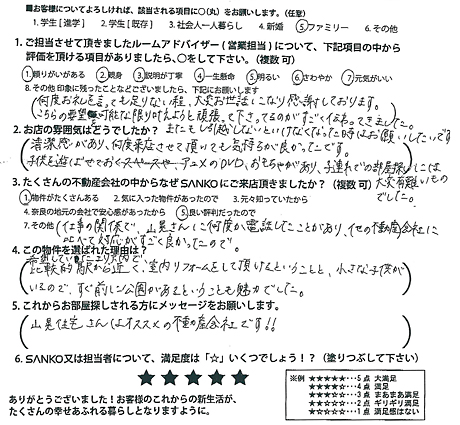 ■お客様についてよろしければ、該当される項目に○(丸)をお願いします。(任意)
1. 学生 [進学] 2. 学生 [既存] 3. 社会人一人暮らし 4. 新婚 ⑤ファミリー 6. その他
1. ご担当させて頂きましたルームアドバイザー(営業担当)について、下記項目の中から
評価を頂ける項目がありましたら、○をして下さい。(複数 可)
①頼りがいがある ②親身 ③説明が丁寧 ④一生懸命 ⑤明るい ⑥さわやか ⑦元気がいい
8. その他 印象に残ったことなどございましたら、下記にお願いします
何度お礼を言っても足りない程、大変お世話になり感謝しております。
こちらの要望を可能な限り叶えようと頑張って下さってるのがすごく伝わってきました。
またもし引越ししないといけなくなった時はお願いしたいです
2. お店の雰囲気はどうでしたか?
清潔感があり、何度来店させて頂いても気持ちが良かったです。
子供を遊ばせておくスペースや、アニメのDVD、おもちゃがあり、子連れでの部屋探しには
大変有難いものでした。
3. たくさんの不動産会社の中からなぜ SANKO にご来店頂きましたか? (複数 可)
①物件がたくさんある 2. 気に入った物件があったから 3. 元々知っていたから
4. 奈良の地元の会社で安心感があったから ⑤良い評判だったので
7. その他 仕事の関係で、山晃さんに何度か電話したことがあり、他の不動産会社に
比べて対応がすごく良かったので。
4. この物件を選ばれた理由は?
希望していたエリア内で
比較的駅から近く、室内リフォームをして頂けるということと、小さな子供が
いるので、すぐ前に公園があるということも魅力でした。
5. これからお部屋探しされる方にメッセージをお願いします。
山晃住宅さんはオススメの不動産会社です!!
6. SANKO又は担当者について、満足度は「☆」いくつでしょう!? (塗りつぶして下さい)
★★★★★
※例 ★★★★★…5点 大満足
★★★★☆…4点 満足
★★★☆☆…3点 まあまあ満足
★★☆☆☆…2点 ギリギリ満足
★☆☆☆☆…1点 満足感はない
ありがとうございました!お客様のこれからの新生活が、
たくさんの幸せあふれる暮らしとなりますように。